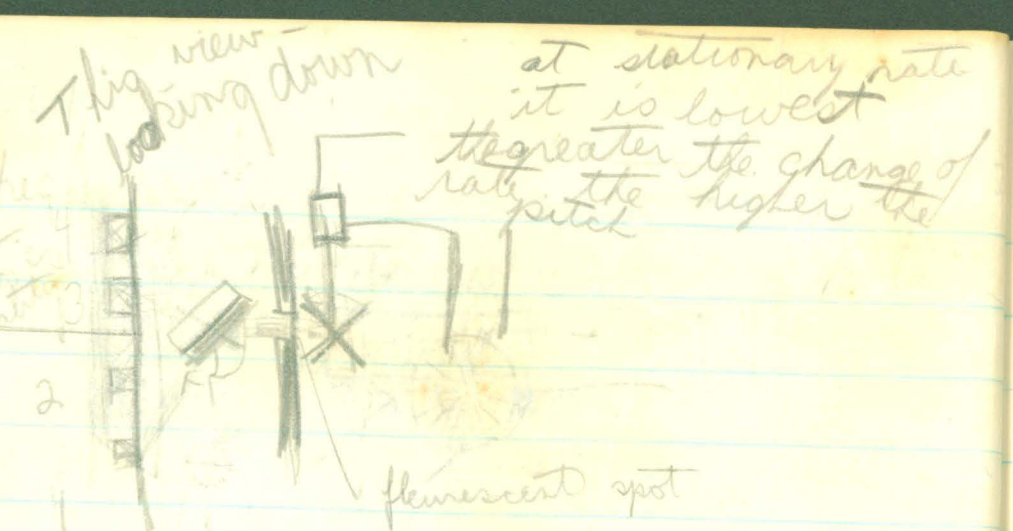 This view
looking down
at stationary rate
it is lowest
the greater the change of
rate the higher the
pitch
2
flourescent spot